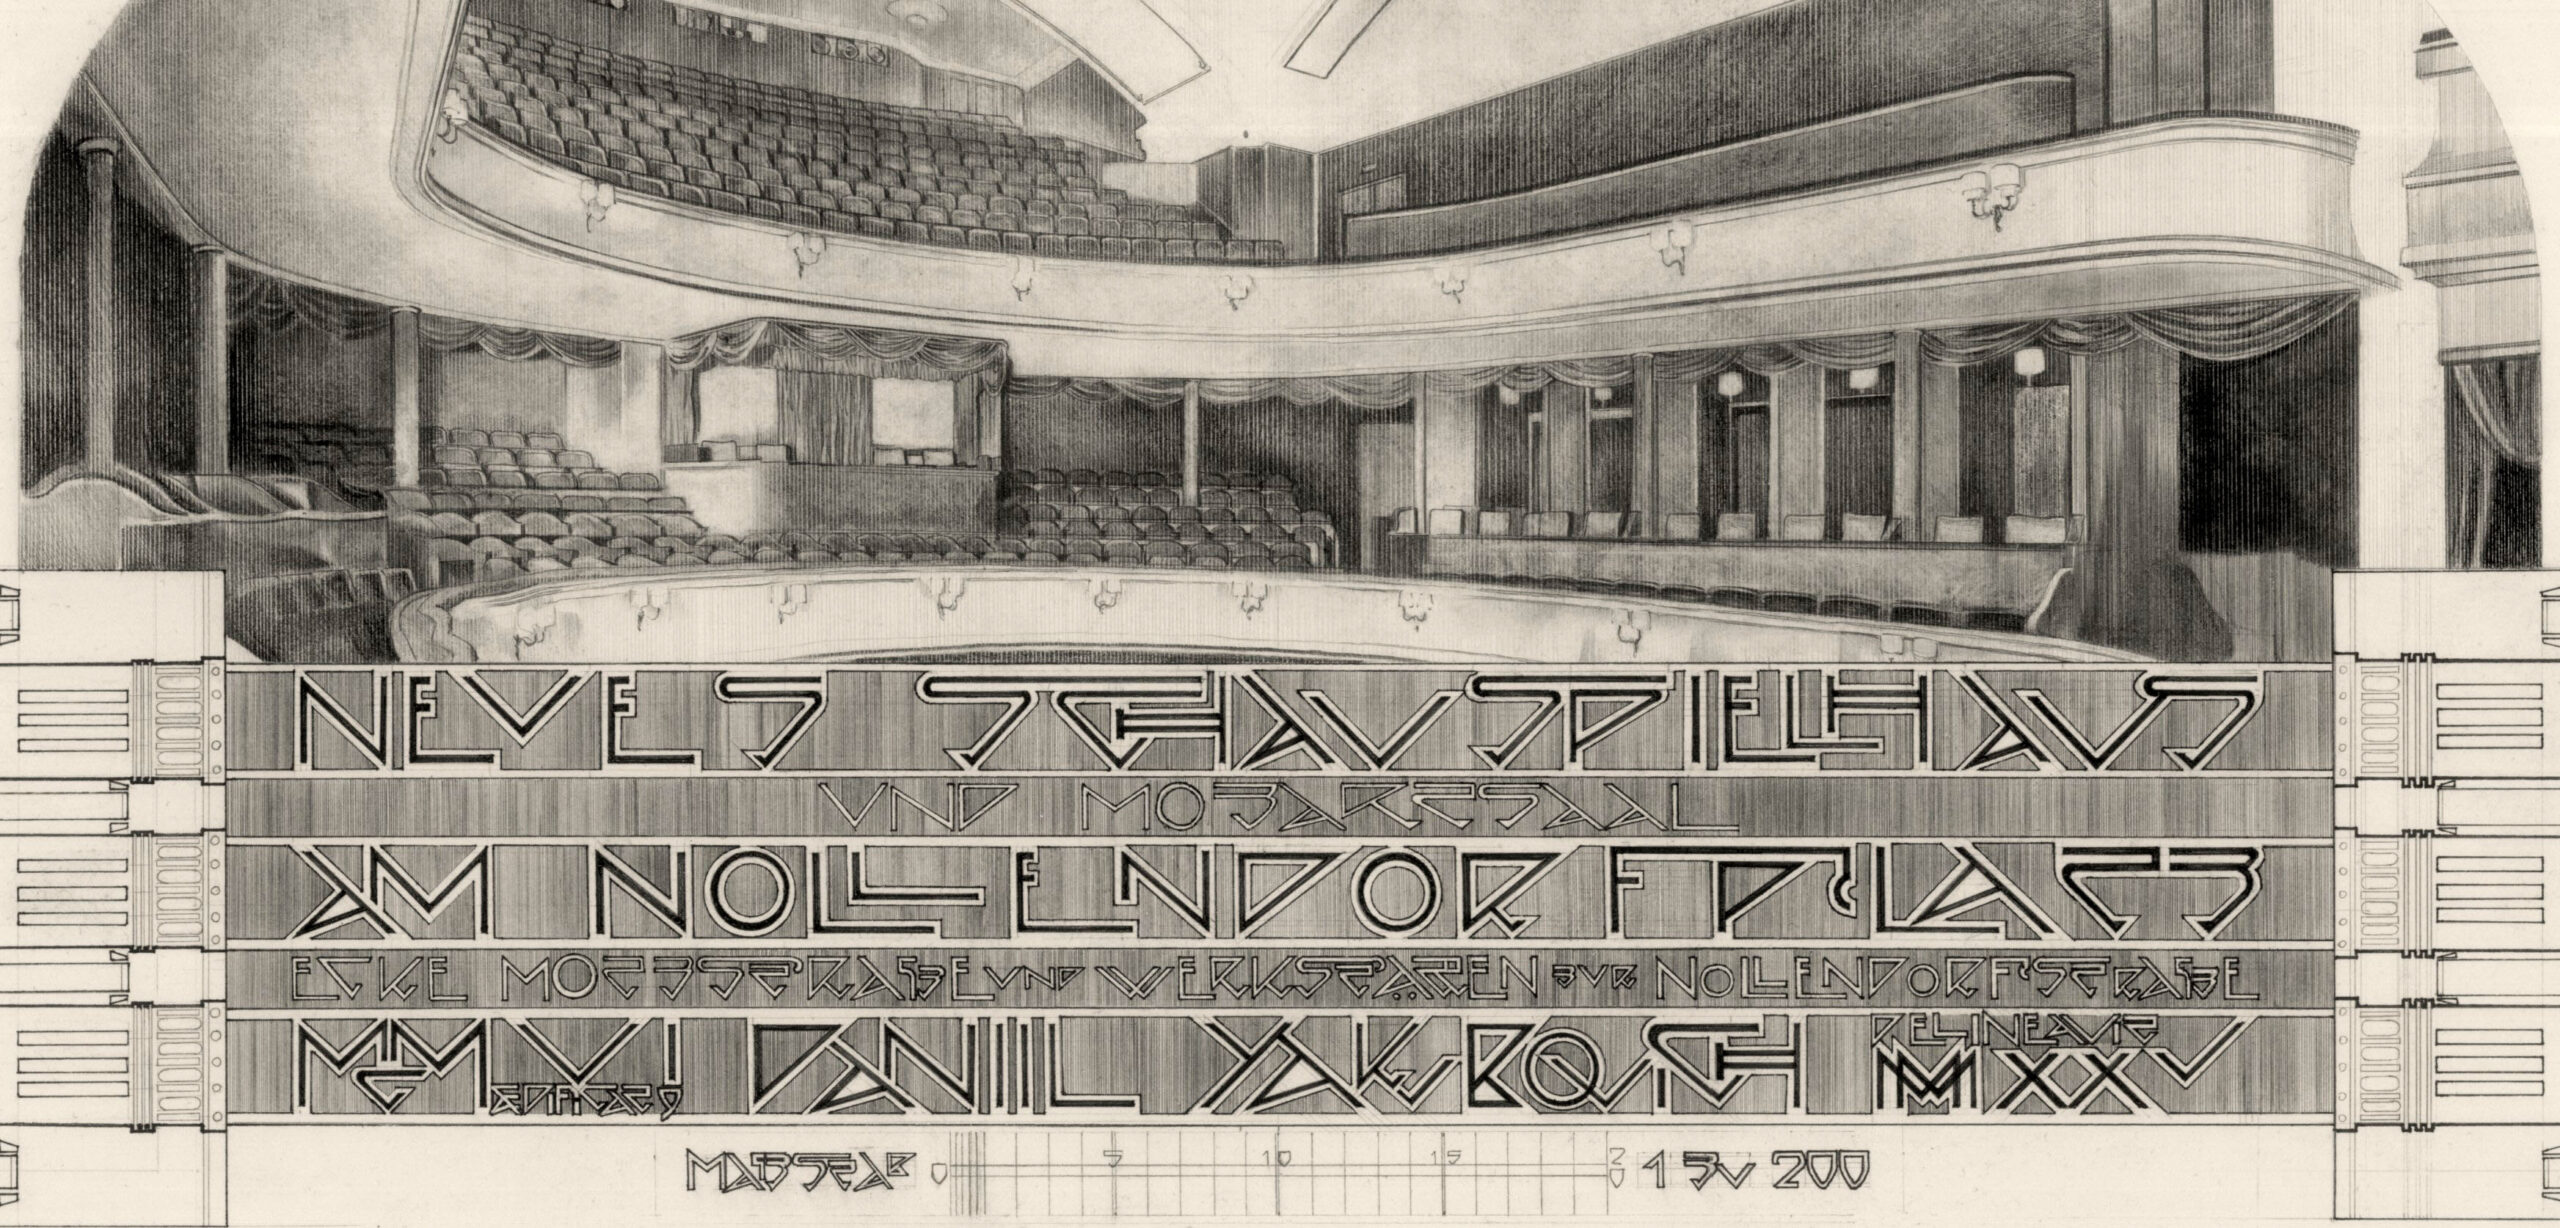 NEVES SCHAVSPIELHAVS
VND MOZARTSAAL
AM NOLLENDORFPLATZ
ECKE MOTZSTRAßE VND WERKSTÄTTEN ZVR NOLLENDORF'STRAßE
MCMVI ÆDIFICAT9 DANIIL YAKVBOVICH RELINEAVIT MMXXV
MAßSTAB 0 5 10 15 20 1 ZV 200